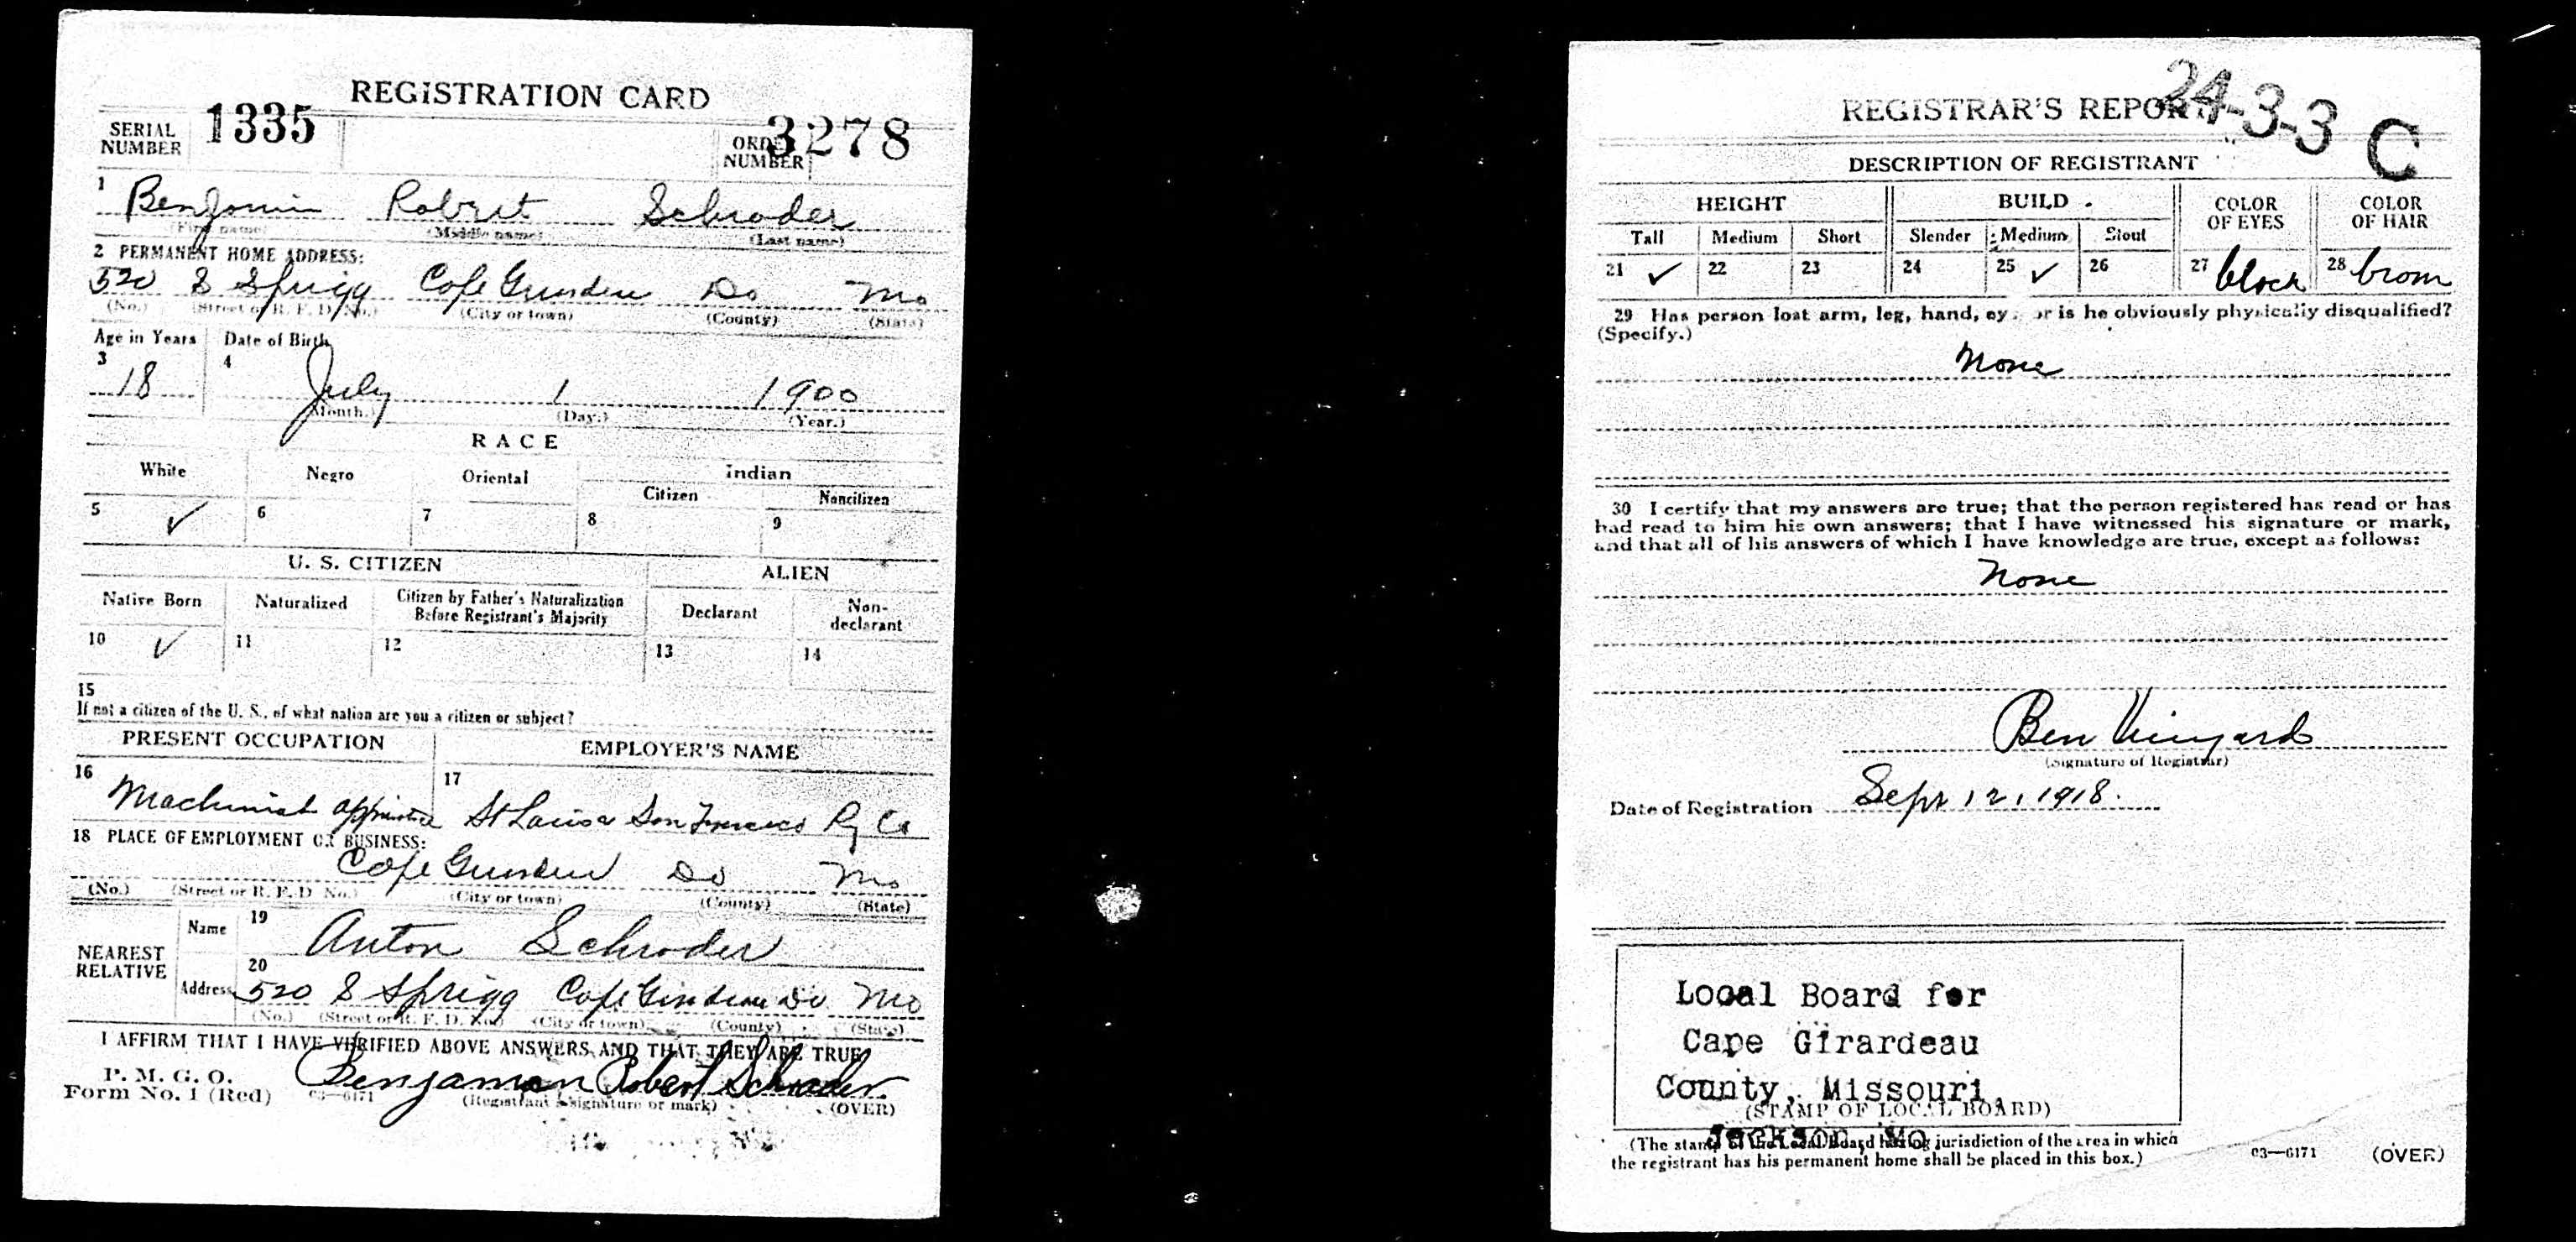 REGISTRATION CARD
SERIAL NUMBER 1335 ORDER NUMBER 3278
1 Benjamin Robert Schroder
(First name) (Middle name) (Last name)
2 PERMANENT HOME ADDRESS:
520 S Sprigg Cape Girardeau Do Mo
(No.) (Street or R. F. D. No.) (City or town) (County) (State)
Age in Years Date of Birth
3 18 4 July 1 1900
(Month.) (Day.) (Year.)
RACE
White Negro Oriental Indian
Citizen Noncitizen
5 ✓ 6 7 8 9
U. S. CITIZEN ALIEN
Native Born Naturalized Citizen by Father's Naturalization Before Registrant's Majority Declarant Non-declarant
10 ✓ 11 12 13 14
15
If not a citizen of the U. S., of what nation are you a citizen or subject?
PRESENT OCCUPATION EMPLOYER'S NAME
16 Machinist apprentice 17 St Louis & San Francisco Ry Co
18 PLACE OF EMPLOYMENT OR BUSINESS:
Cape Girardeau Do Mo
(No.) (Street or R. F. D. No.) (City or town) (County) (State)
NEAREST RELATIVE
Name 19 Anton Schroder
Address 20 520 S Sprigg Cape Girardeau Do Mo
(No.) (Street or R. F. D. No.) (City or town) (County) (State)
I AFFIRM THAT I HAVE VERIFIED ABOVE ANSWERS AND THAT THEY ARE TRUE
P. M. G. O.
Form No. 1 (Red) 03—6171 Benjaman Robert Schroder
(Registrant's signature or mark) (OVER)
REGISTRAR'S REPORT
24-3-3 C
DESCRIPTION OF REGISTRANT
HEIGHT BUILD COLOR OF EYES COLOR OF HAIR
Tall Medium Short Slender Medium Stout
21 ✓ 22 23 24 25 ✓ 26 27 black 28 brown
29 Has person lost arm, leg, hand, eye, or is he obviously physically disqualified?
(Specify.)
None
30 I certify that my answers are true; that the person registered has read or has
had read to him his own answers; that I have witnessed his signature or mark,
and that all of his answers of which I have knowledge are true, except as follows:
None
Ben Vinyard
(Signature of Registrar)
Date of Registration Sept 12, 1918.
Local Board for
Cape Girardeau
County, Missouri,
(STAMP OF LOCAL BOARD)
Jackson, Mo.
(The stamp of the Local Board having jurisdiction of the area in which
the registrant has his permanent home shall be placed in this box.)
03—6171 (OVER)